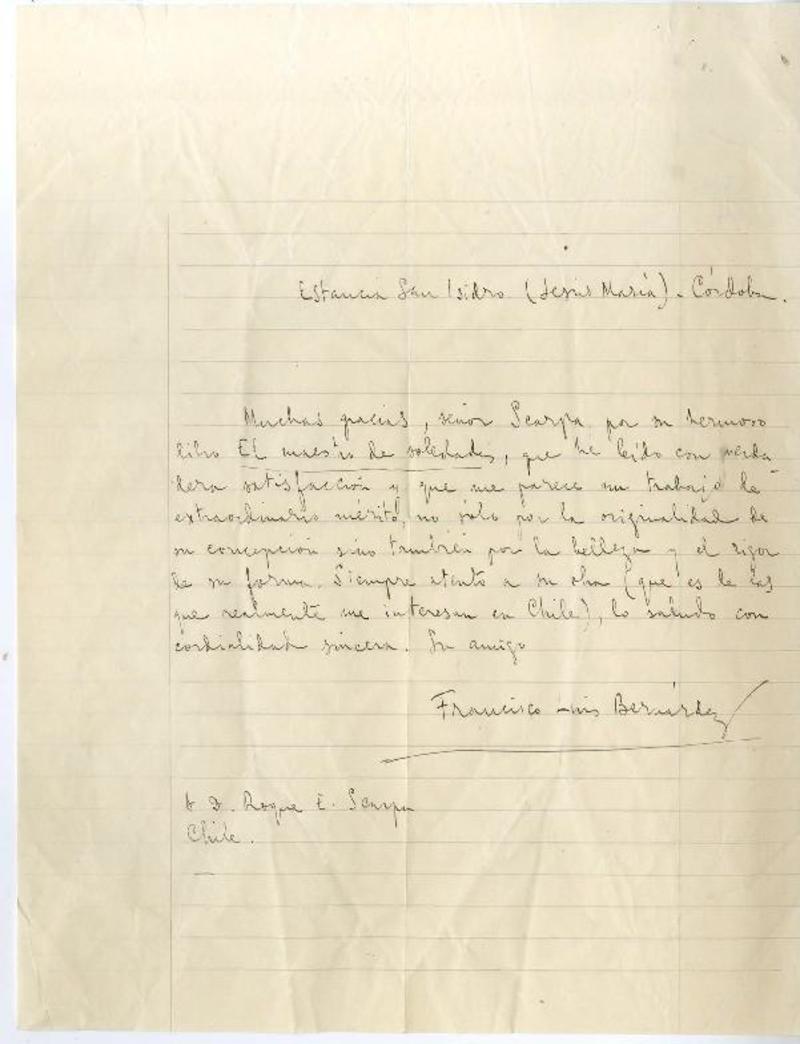 Estancia San Isidro (Jesús María) - Córdoba.
Muchas gracias, señor Scarpa por su hermoso
libro El maestro de soledades, que he leído con verda
dera satisfacción y que me parece un trabajo de
extraordinario mérito, no sólo por la originalidad de
su concepción sino también por la belleza y el rigor
de su forma. Siempre atento a su obra (que es de las
que realmente me interesan en Chile), lo saludo con
cordialidad sincera. Su amigo
Francisco Luis Bernárdez
A D. Roque E. Scarpa
Chile.